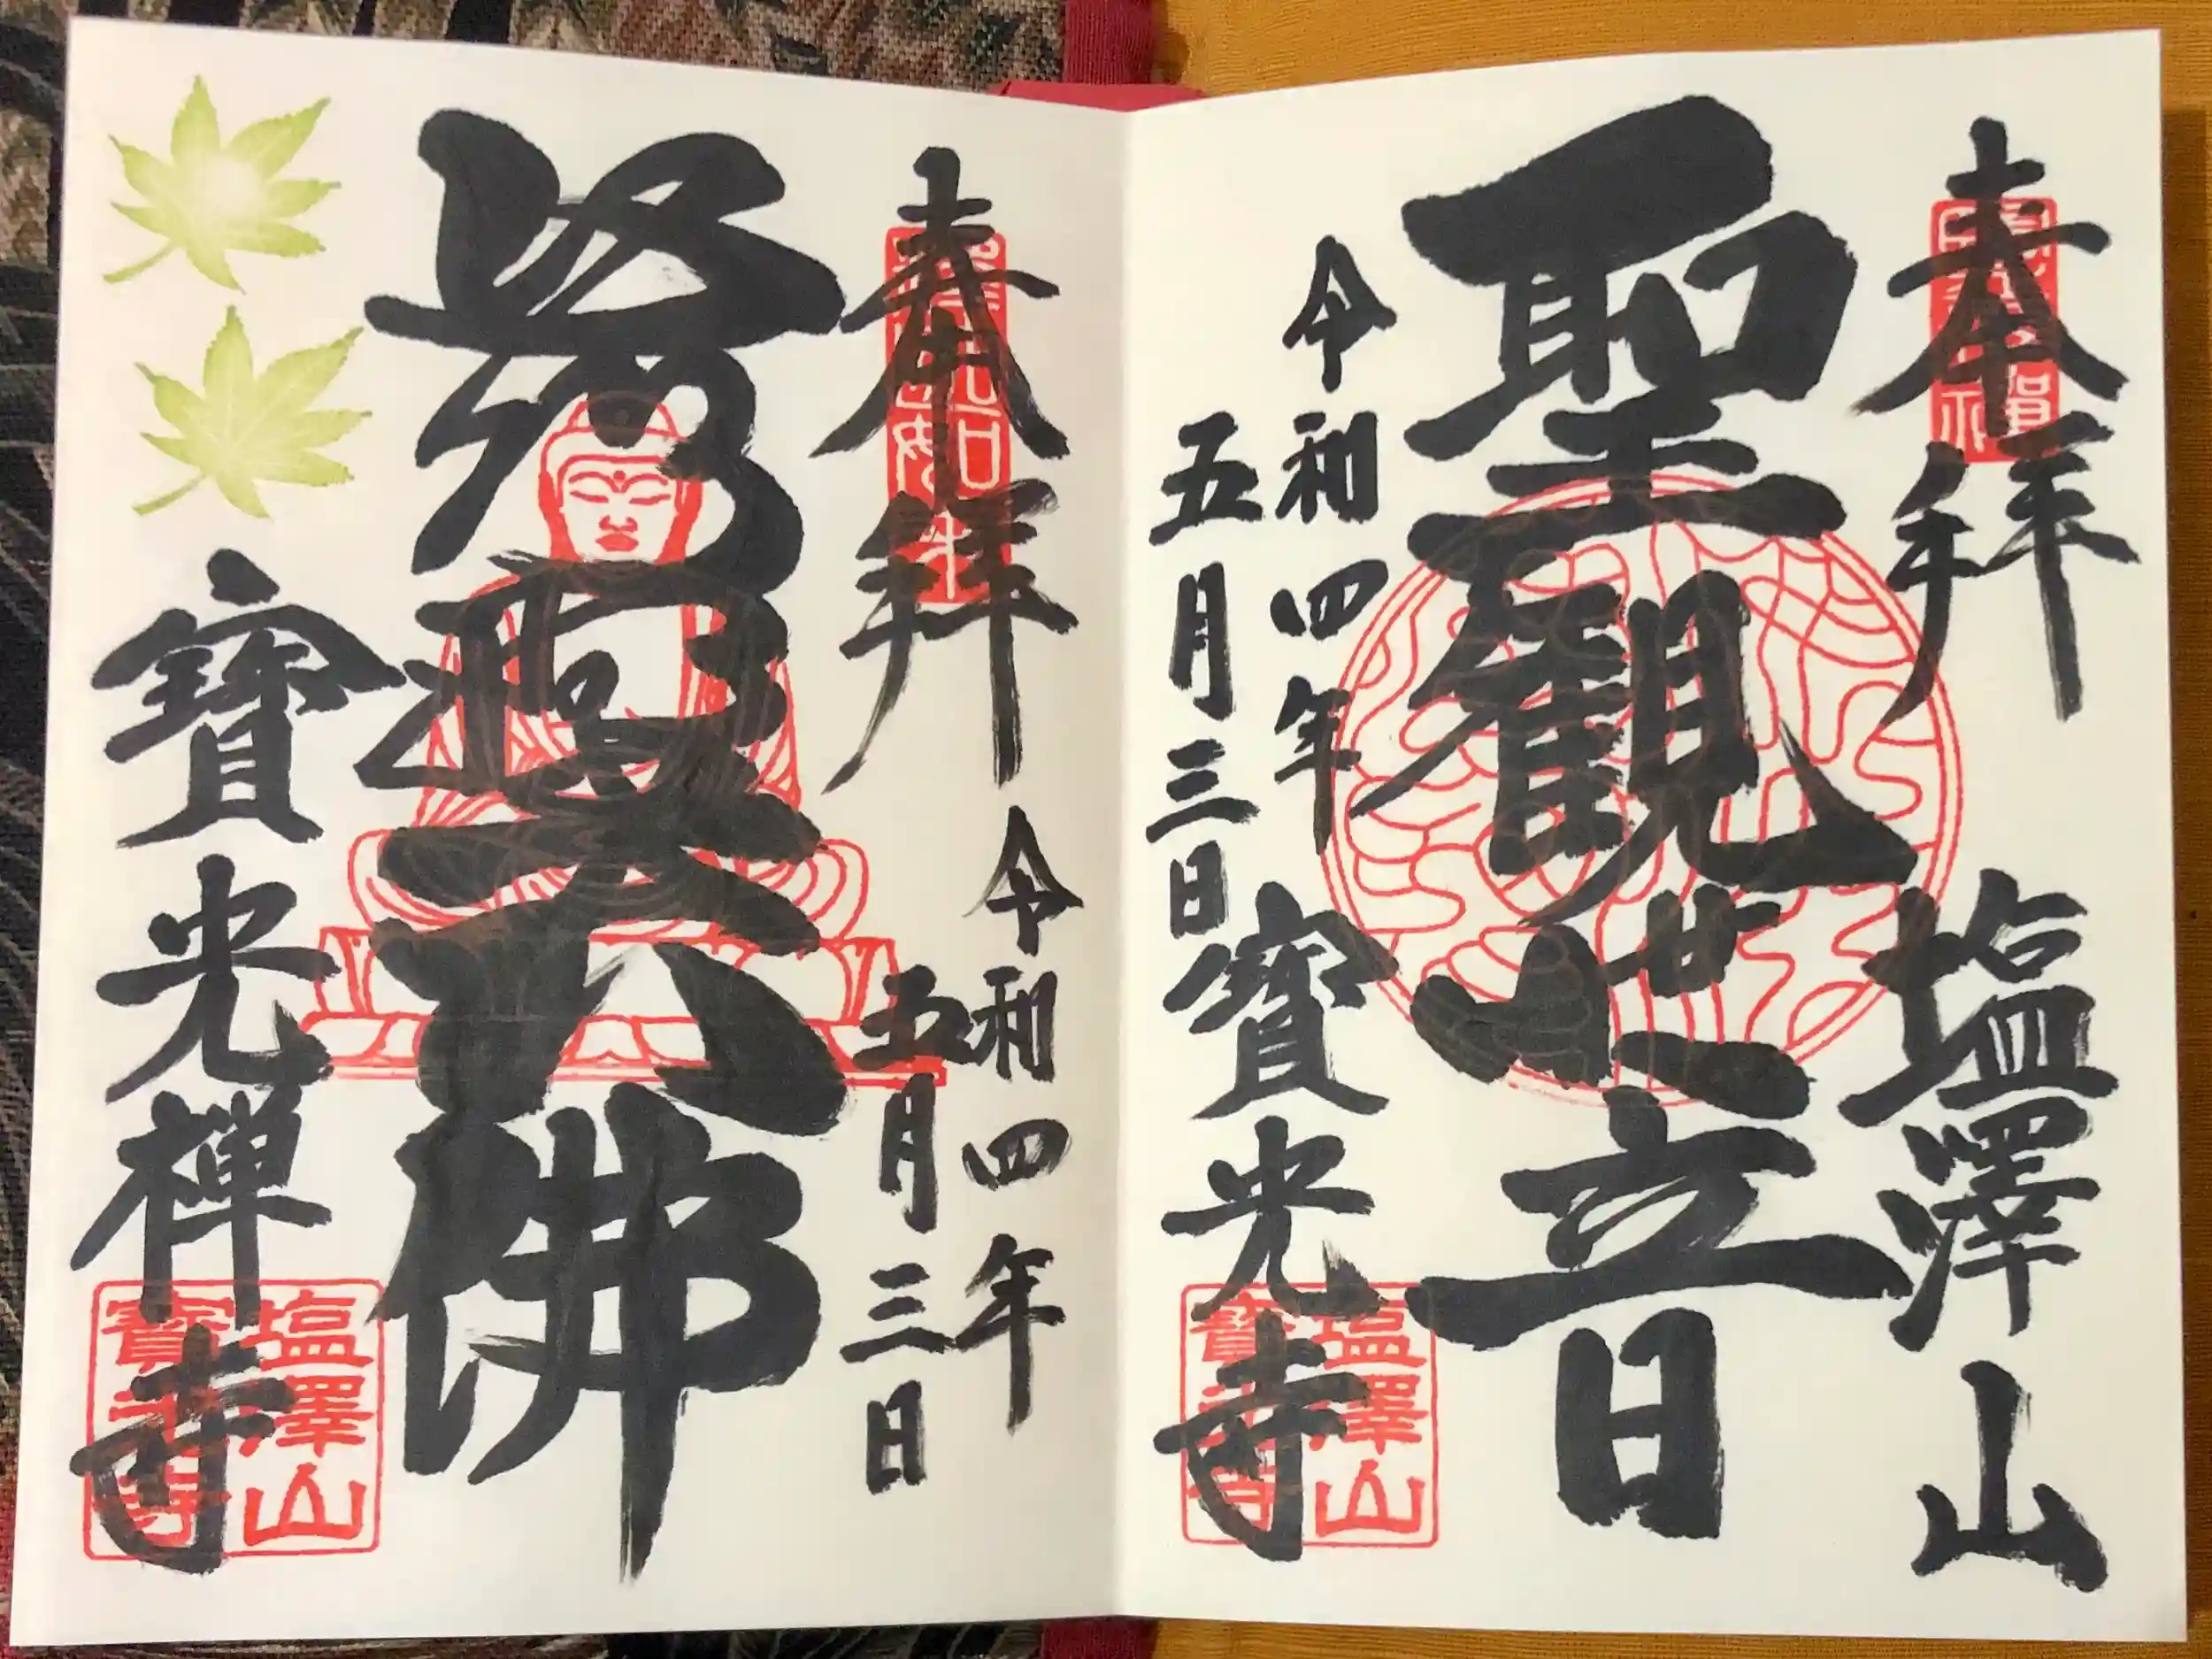 奉拝 塩澤山
聖観世音
令和四年
五月三日
寳光寺
塩澤山
寳光寺
奉拝
令和四年
五月三日
鹿野大佛
寳光禅寺
塩澤山
寳光寺